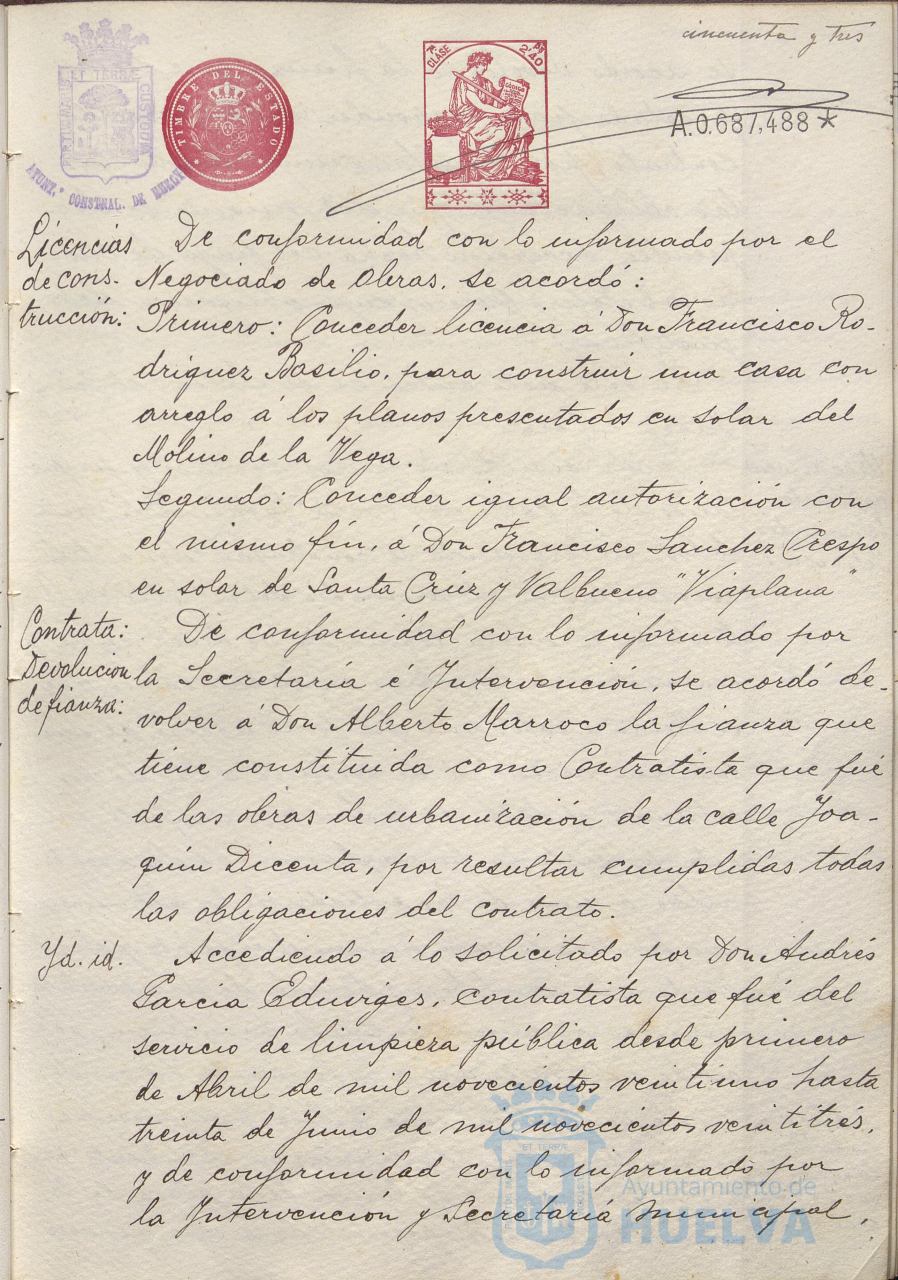 cincuenta y tres
PORTUS MARIS ET TERRÆ CUSTODIA
AYUNT.º CONSTNAL. DE HUELVA
TIMBRE DEL ESTADO
7ª CLASE 2'40
A.0.687,488*
Licencias
de cons-
trucción:
De conformidad con lo informado por el
Negociado de Obras, se acordó:
Primero: Conceder licencia á Don Francisco Ro-
driguez Basilio, para construir una casa con
arreglo á los planos presentados en solar del
Molino de la Vega.
Segundo: Conceder igual autorización con
el mismo fín, á Don Francisco Sanchez Crespo
en solar de Santa Crúz y Valbueno "Viaplana"
Contrata:
Devolucion
de fianza:
De conformidad con lo informado por
la Secretaría é Intervención, se acordó de-
volver á Don Alberto Marroco la fianza que
tiene constituida como Contratista que fué
de las obras de urbanización de la calle "Joa-
quin Dicenta, por resultar cumplidas todas
las obligaciones del contrato.
Yd. id.
Accediendo á lo solicitado por Don Andrés
Garcia Eduviges, contratista que fué del
servicio de limpieza pública desde primero
de Abril de mil novecientos veintiuno hasta
treinta de Junio de mil novecientos veintitrés,
y de conformidad con lo informado por
la Intervención y Secretaría municipal,
Ayuntamiento de
HUELVA